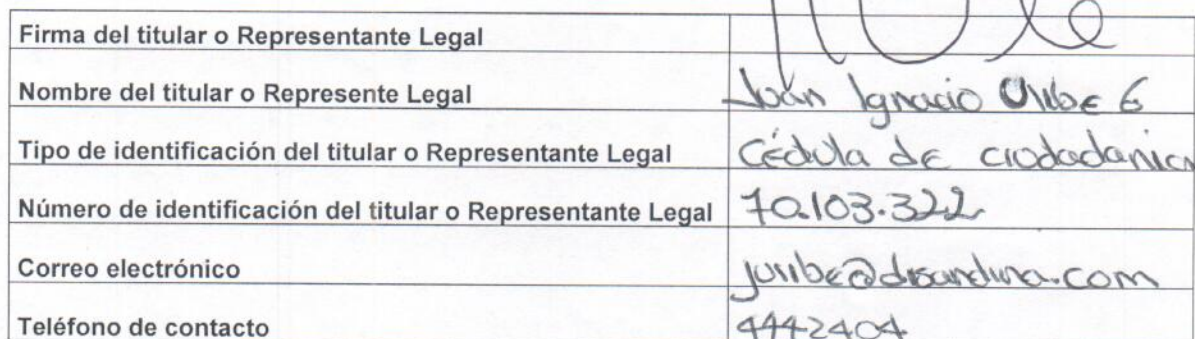 Firma del titular o Representante Legal
Nombre del titular o Represente Legal Juán Ignacio Uribe G
Tipo de identificación del titular o Representante Legal Cédula de ciudadanía
Número de identificación del titular o Representante Legal 70.103.322
Correo electrónico juribe@disandina.com
Teléfono de contacto 4442404